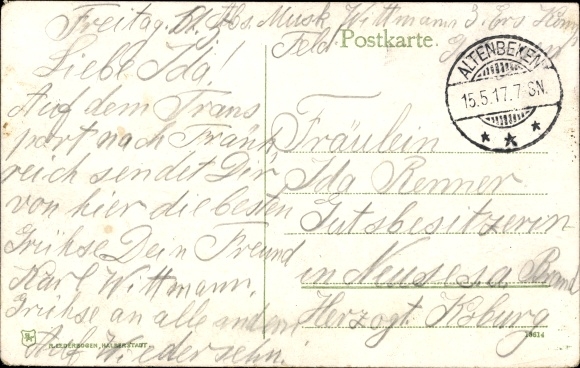 Freitag Abs. Musk. Wittmann 3. Ers Komp
Feld-
Postkarte.
ALTENBEKEN
15.5.17.7-8N.
Liebe Ida!
Auf dem Trans
port nach Frank,
reich sendet Dir
von hier die besten
Grühse Dein Freund
Karl Wittmann.
Grühse an alle andern
Auf Wiedersehn!
Fräulein
Ida Renner
Gutsbesitzerin
in Neuses a
Herzogt. Koburg
R. LEDERBOGEN, HALBERSTADT
19614